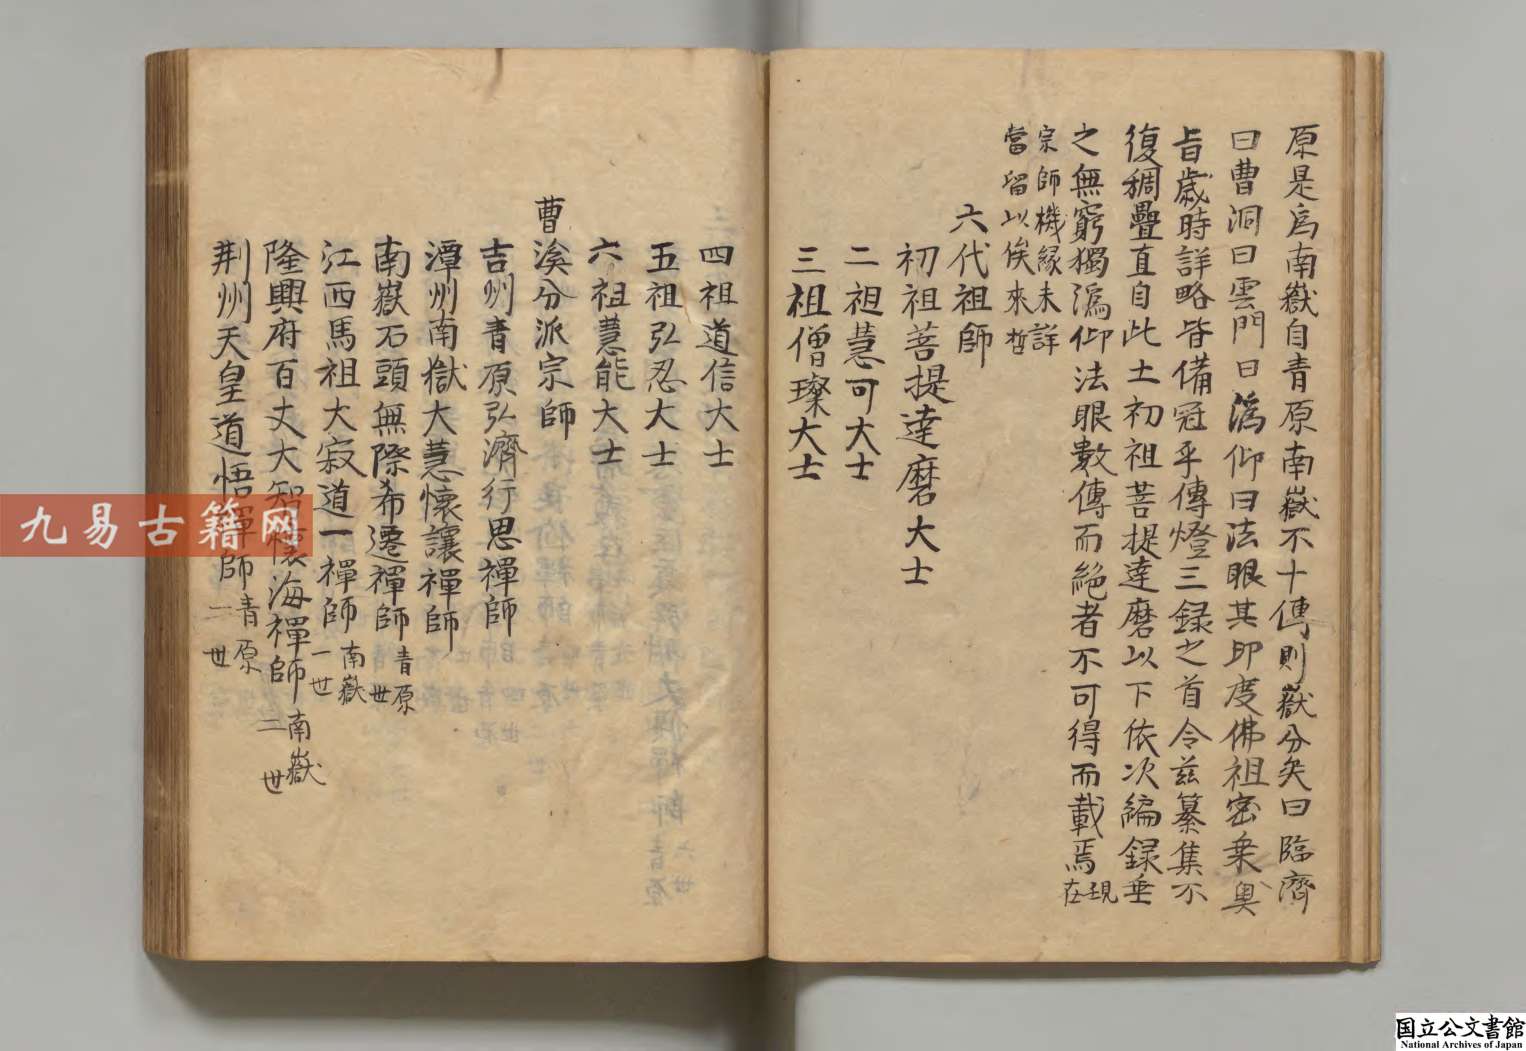 原是為南嶽自青原南嶽不十傳則嶽分矣曰臨濟
曰曹洞曰雲門曰溈仰曰法眼其印度佛祖密乘奧
旨歲時詳略皆備冠乎傳燈三録之首今兹纂集不
復稠疊直自此土初祖菩提達磨以下依次編録垂
之無窮獨溈仰法眼數傳而絶者不可得而載焉現在
宗師機緣未詳
當留以俟來哲
六代祖師
初祖菩提達磨大士
二祖慧可大士
三祖僧璨大士
四祖道信大士
五祖弘忍大士
六祖慧能大士
曹溪分派宗師
吉州青原弘濟行思禪師
潭州南嶽大慧懷讓禪師
南嶽石頭無際希遷禪師青原一世
江西馬祖大寂道一禪師南嶽一世
隆興府百丈大智懷海禪師南嶽二世
荆州天皇道悟禪師青原二世
九易古籍网
国立公文書館
National Archives of Japan